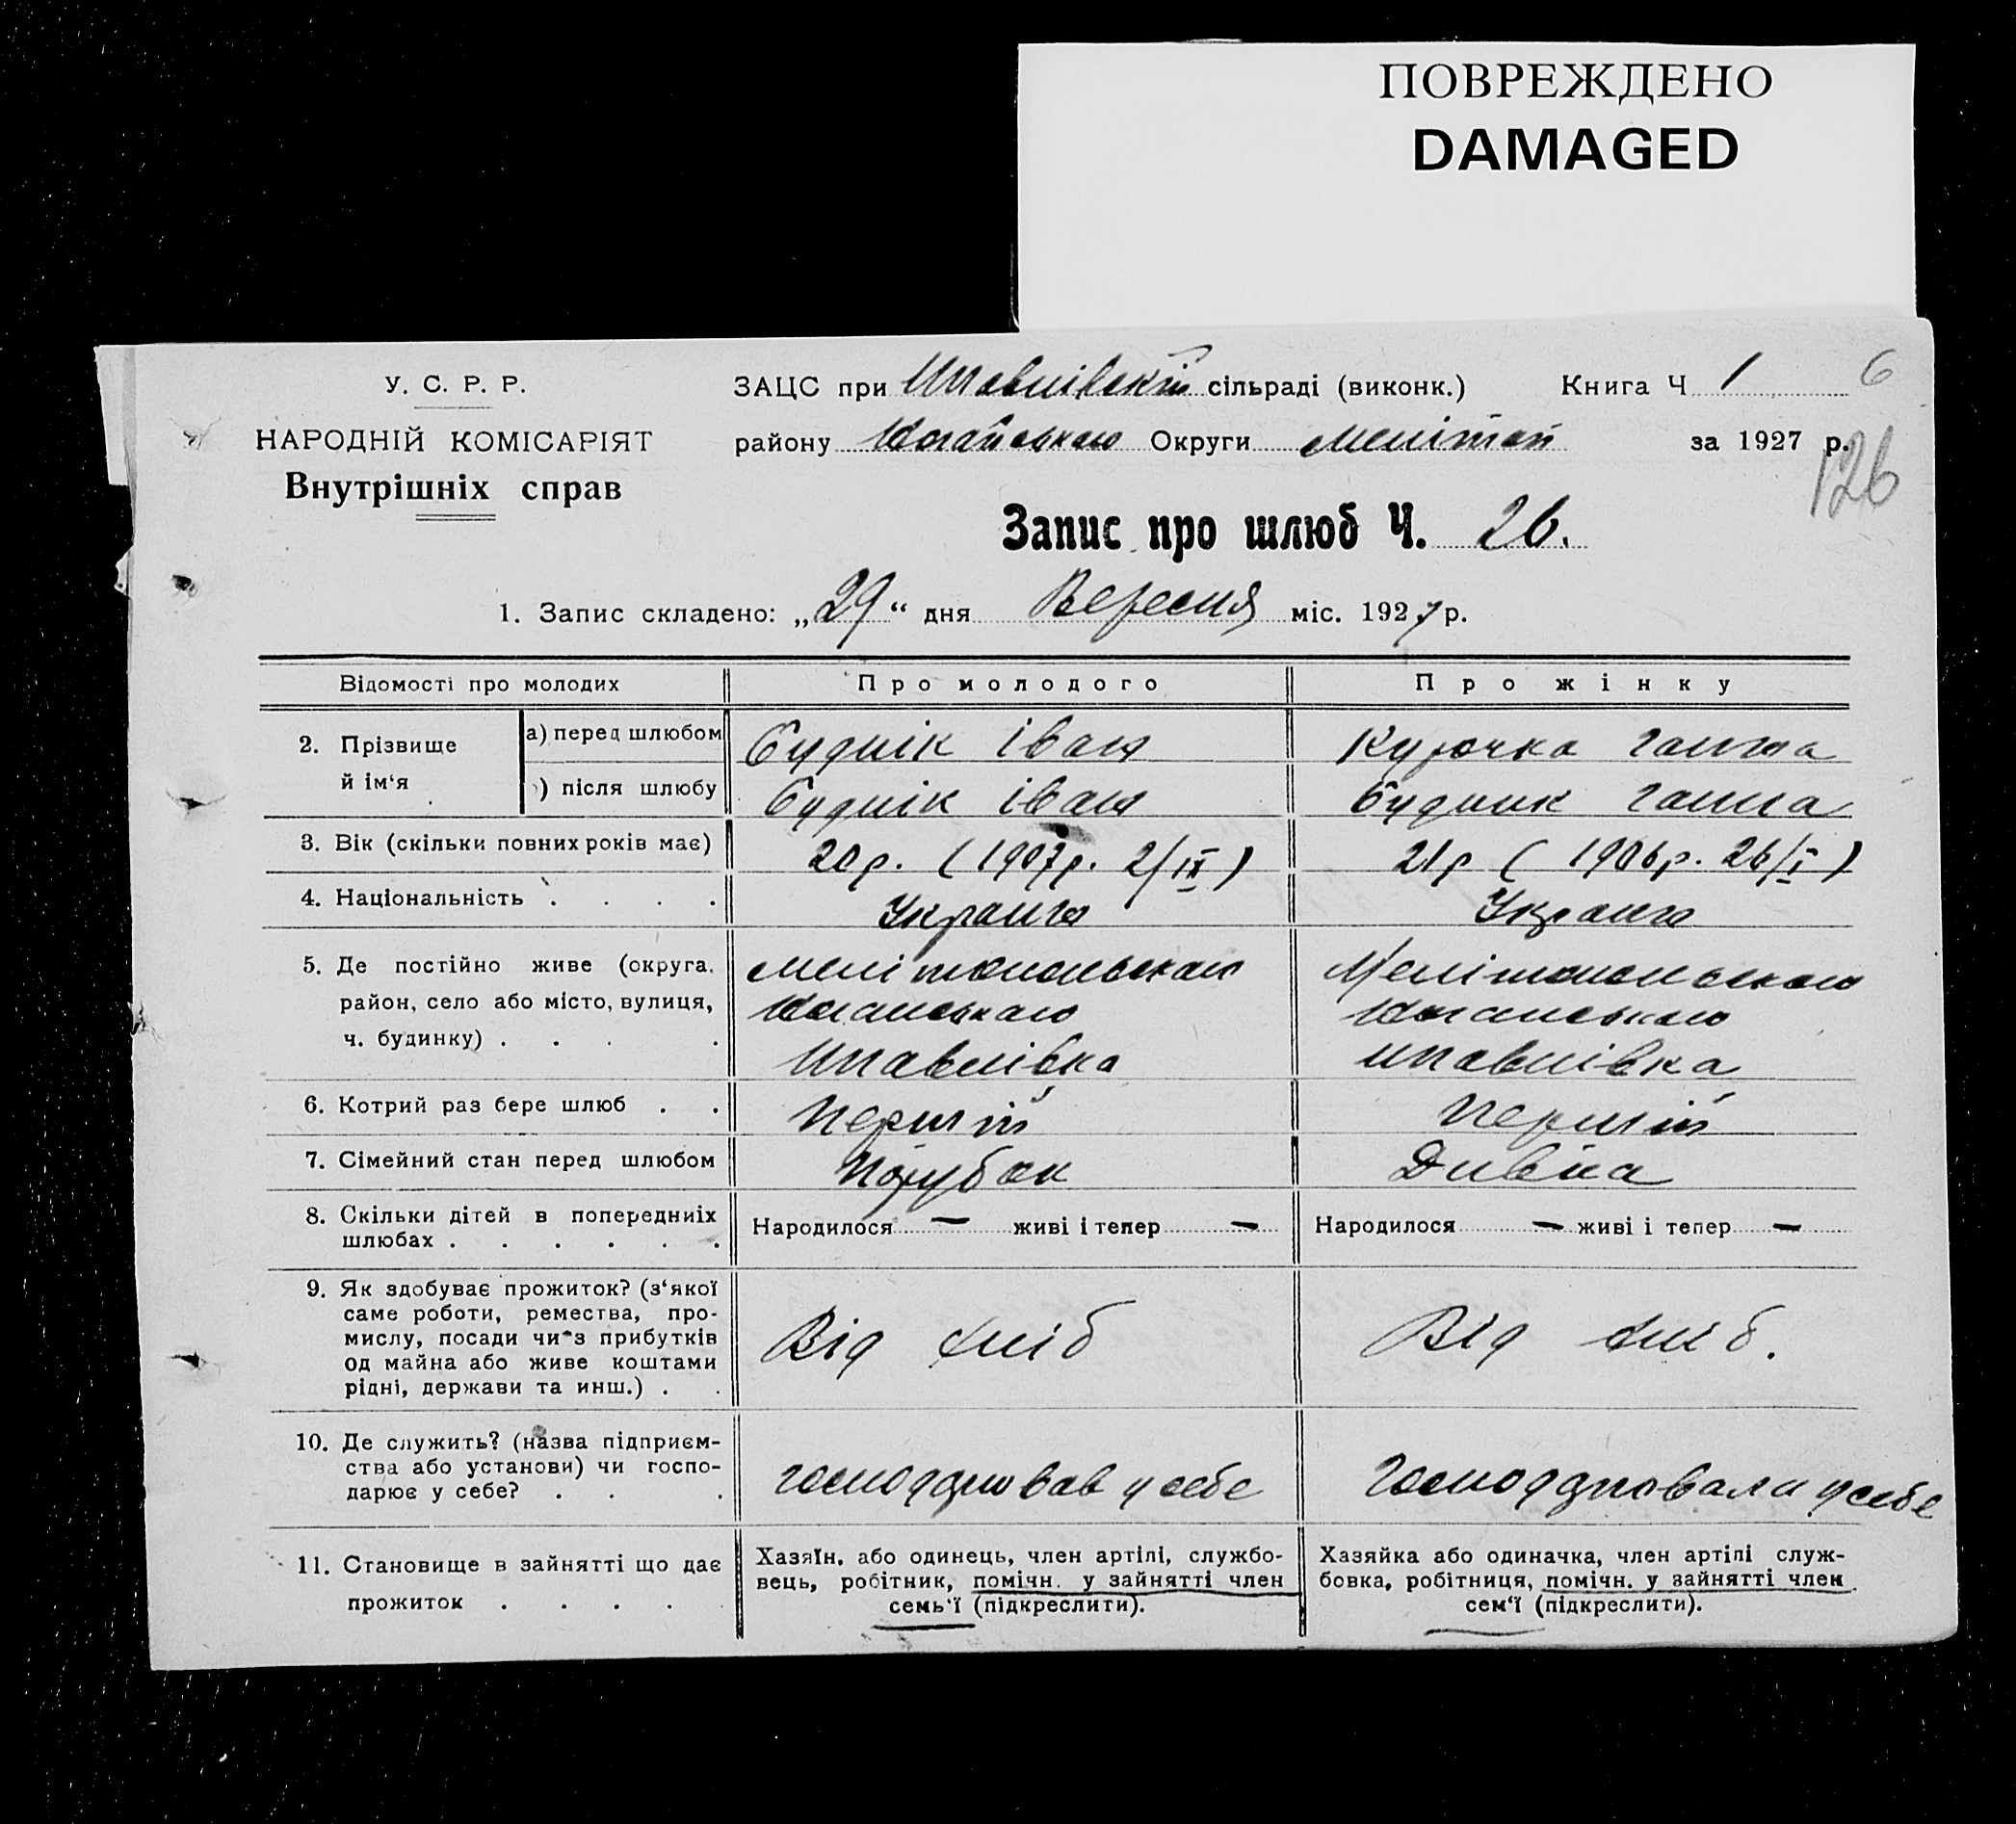 ПОВРЕЖДЕНО
DAMAGED
У. С. Р. Р.
НАРОДНІЙ КОМІСАРІЯТ
Внутрішніх справ
ЗАЦС при сільраді (виконк.) Книга Ч 1 6
району Округи Мелітоп за 1927 р.
126
Запис про шлюб Ч. 26.
1. Запис складено: „29“ дня Вересня міс. 1927 р.
Відомості про молодих
Про молодого
Про жінку
2. Прізвище й ім‘я
а) перед шлюбом
Буднік Іван
Курочка Ганна
) після шлюбу
Буднік Іван
Будник Ганна
3. Вік (скільки повних років має)
20 р. (1907 р. 2/IX)
21 р (1906 р. 26/I)
4. Національність . . . .
Україн
Україн
5. Де постійно живе (округа,
район, село або місто, вулиця,
ч. будинку) . . . .
Мелітопольського
Мелітопольського
6. Котрий раз бере шлюб . .
Першій
Першій
7. Сімейний стан перед шлюбом
Парубок
Дивка
8. Скільки дітей в попередниіх
шлюбах . . . . . .
Народилося — живі і тепер —
Народилося — живі і тепер —
9. Як здобуває прожиток? (з‘якої
саме роботи, ремества, про-
мислу, посади чи з прибутків
од майна або живе коштами
рідні, держави та инш.) . .
Від хліб
Від хліб.
10. Де служить? (назва підприєм-
ства або установи) чи госпо-
дарює у себе? . . .
господарював у себе
Господарювала у себе
11. Становище в зайнятті що дає
прожиток . . . . .
Хазяїн, або одинець, член артілі, службо-
вець, робітник, помічн. у зайнятті член
семь‘ї (підкреслити).
Хазяйка або одиначка, член артілі служ-
бовка, робітниця, помічн. у зайнятті член
сем‘ї (підкреслити).